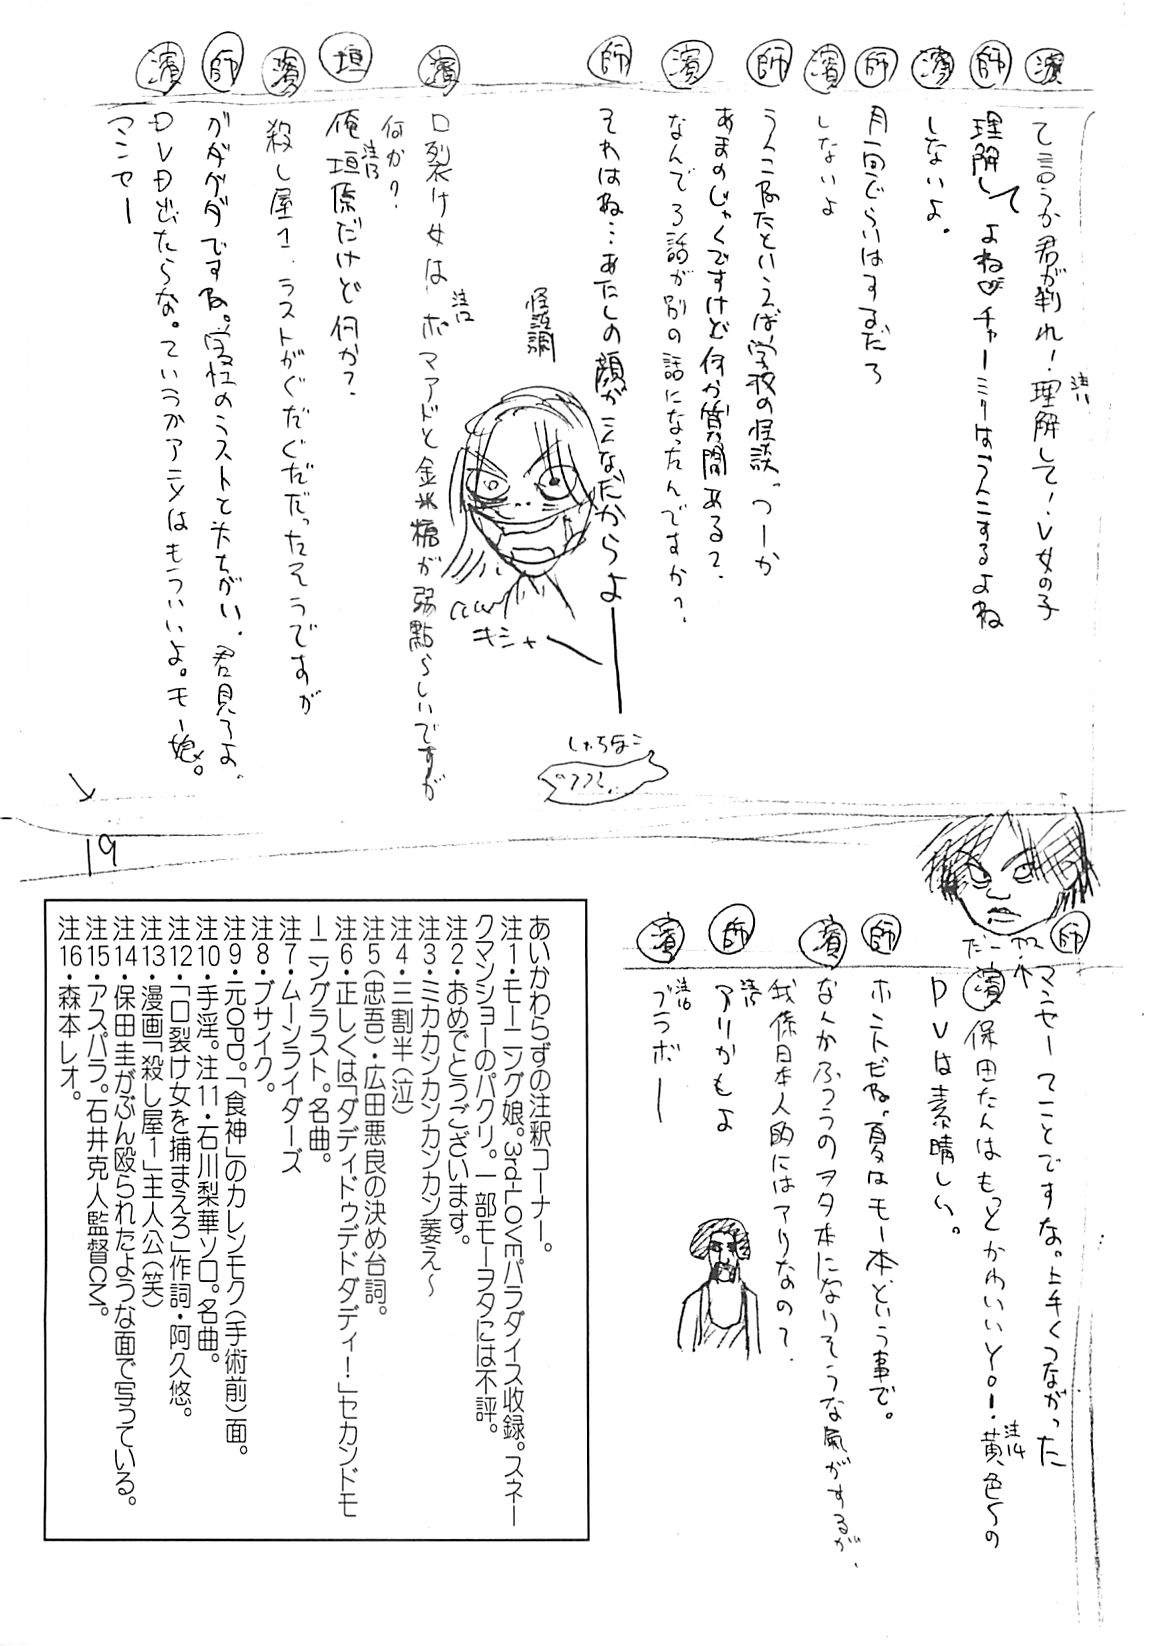 濱 て言うか君が判れ!理解して!>女の子
注11
師 理解してよね チャーミーはうんこするよね
濱 しないよ。
師 月一回ぐらいはするだろ
濱 しないよ
師 うんこ ネタといえば学校の怪談っつーか
あまのじゃくですけど何か質問ある?
濱 なんで3話が別の話になったんですか?
師 それはね…あたしの顔がこんなだからよー
怪談調
キシャー
濱 口裂け女はポマアドと金米糖が弱點らしいですが
注12
何か?
垣 俺垣原だけど何か?
注13
濱 殺し屋1、ラストがぐだぐだだったそうですが
師 グダグダですね。
君見ろよ。
濱 DVD出たらな。ていうかアニメはもういいよ。モー娘。
マンセー
19
師 マンセーってことですな。上手くつながった
濱 保田たんはもっとかわいいYO!・黄色の
注14
PVは素晴しい。
師 ホントだね。夏はモー本、という事で。
濱 なんかふつうのヲタ本になりそうな氣がするが、
我係日本人的にはアリなの?
師 アリかもよ
注15
濱 ブラボー
注16
あいかわらずの注釈コーナー。
注1・モーニング娘。3rd-LOVEパラダイス収録。スネー
クマンショーのパクリ。一部モーヲタには不評。
注2・おめでとうございます。
注3・ミカカンカンカンカン萎え〜
注4・三割半(泣)
注5(忠吾)・広田悪良の決め台詞。
注6・正しくは「ダディドゥデドダディ!」セカンドモ
ーニングラスト。名曲。
注7・ムーンライダーズ
注8・ブサイク。
注9・元OPD。「食神」のカレンモク(手術前)面。
注10・手淫。注11・石川梨華ソロ。名曲。
注12・「口裂け女を捕まえろ」作詞・阿久悠。
注13・漫画「殺し屋1」主人公(笑)
注14・保田圭がぶん殴られたような面で写っている。
注15・アスパラ。石井克人監督CM。
注16・森本レオ。